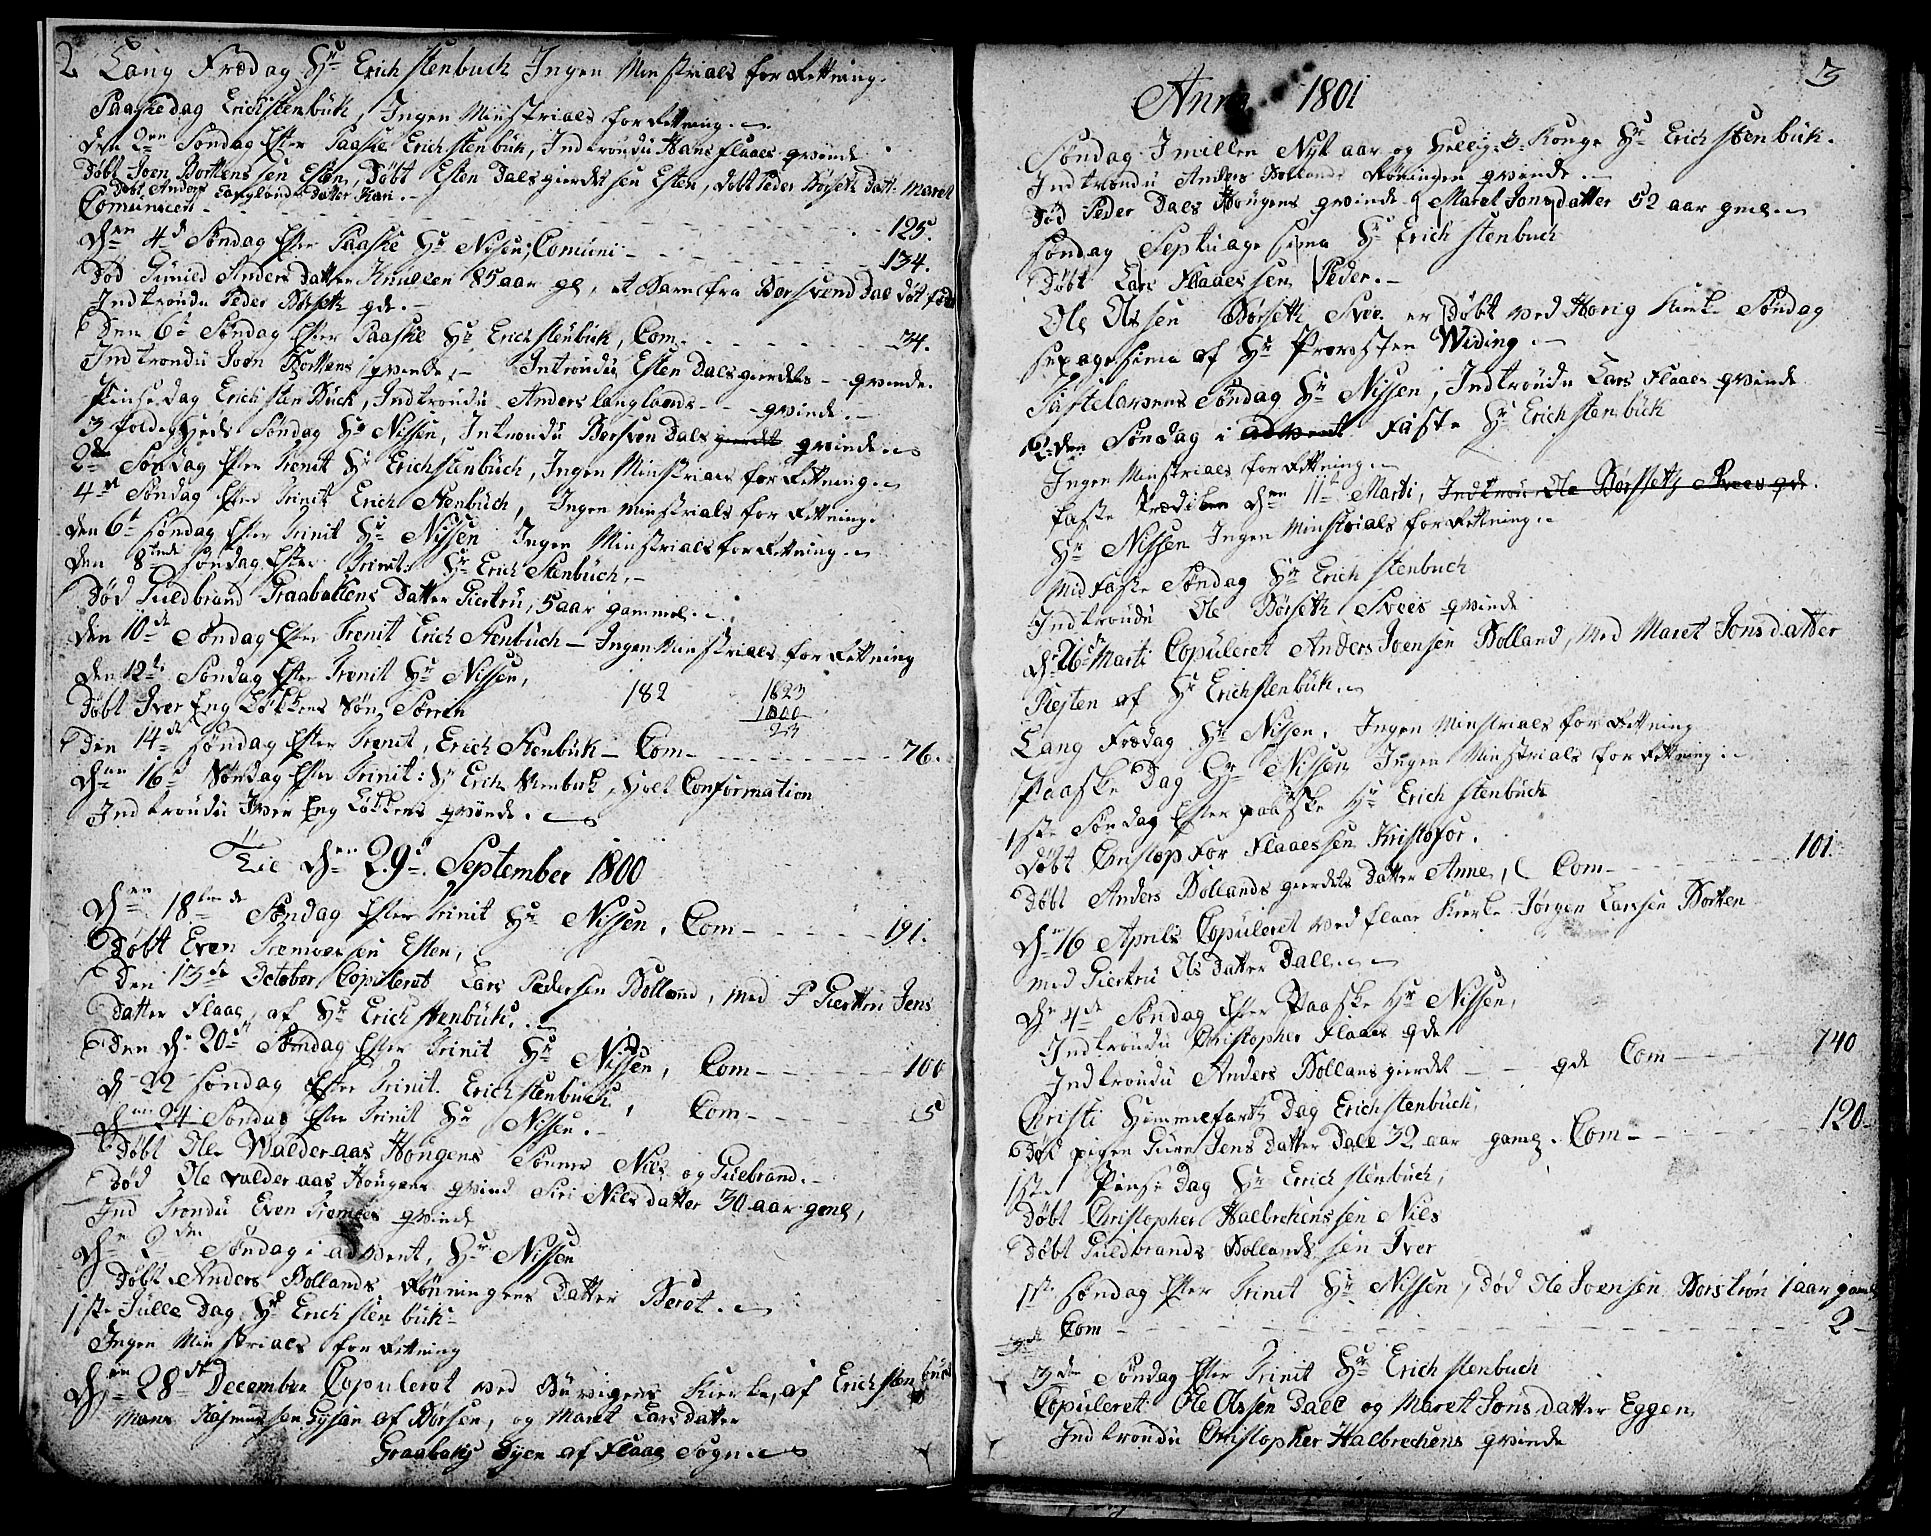 2 Lang Fredag Hr Erich Stenbuch Ingen Minstrials forRettning.
Paaskedag Erich Stenbük, Ingen Minstrials forRettning.
den 2en Søndag Efter Paaske Erich Stenbük, Indtrondu Hans Flaaes qvinde
Døbt Joen Bortens søn Esten, Døbt Esten Dalsgierdets søn Esten, døbt Peder Børseth Datt: Maret
Døbt Anders Langlands Datter Kari.
Comunicen - - - 125.
den 4de Søndag Efter Paaske Hr Nissen, Comuni - - - 134.
Død Gunild Anders Datter 85 aar gl, et Barn fra Borsvend Dal døt fød
Indtrondu Peder Børseth qde.
Den 6te Søndag Efter Paaske Hr Erich Stenbük, Com. - - - 34.
Indtrondu Joen Bortens qvinde, - Introndu Esten Dalsgierdets - qvinde.
Pinsedag Erich Sten Buck, Indtrondu Anders langlands - - qvinde.
3 foldigheds Søndag Hr Nissen, Introndu Bersven Dals gierdet qvinde.
2den Søndag Efter Trenit Hr Erich Stenbuch, Ingen Minstriaes for Rettning.
4de Søndag Efter Trinit Erich Stenbuch, Ingen Minstrials for Rettning.
den 6te søndag Efter Trinit Hr Nissen Ingen Minstrials for Rettning.
den 8tende søndag Efter Trinit: Hr Erich Stenbuch.
Død Guldbrand Graabakens Datter Giertru, 5 aar gammel.
den 10de Søndag Efter Trenit Erich Stenbuch - Ingen Minstriales for Rettning
den 12te Søndag Efter Trenit Hr Nissen,
Døbt Iver Eng Løkkens Søn Sørren 182 1823
1800
23
Den 14de Søndag Efter Trenit, Erich Stenbük - Com - - - 76.
den 16de Søndag Efter Trinit: Hr Erich Stenbuk, holt Conformation
Indtrondu Iver Eng Løkkens qvinde.
Til den 29de September 1800
den 18tende Søndag Efter Trinit Hr Nissen, Com - - - 191.
Døbt Even søn Esten,
Den 13de October Copuleret Lars Pedersen Bolland, med Giertru Jens
datter Flaae, af Hr Erich Stenbük.
Den d. 20de Søndag Efter Trinit Hr Nissen, Com - - - 100
d. 22 søndag Efter Trinit. Erich Stenbuck, Com - - - 5
den 24 Søndag Efter Trinit Hr Nissen.
Døbt Ole Walderaas Hougens Sønner Nils og Gulbrand.
Død Ole valderaas Hougens qvind Siri Nils datter 30 aar geml,
Ind Trondu Even qvinde
d. 2den Søndag i advent, Hr Nissen
Døbt Anders Bollands Rønningens Datter Berot.
1ste Julle Dag Hr Erich Stenbuk
Ingen Minstrials for Rettning
den 28de December Copulerot ved Büvigens Kierke, af Erich Stenbuk
Mons Rasmussen af Børsen, og Maret Larsdatter
Graabaks Eyen af Flaae Sogn.
3
Anno 1801
Søndag Imillen Nyt aar og Hellig 3 Konge Hr Erich Stenbük.
Indtrondu Anders Bollands Røningen qvinde.
Død Peder Dals Hougens qvinde Maret Jonsdatter 52 aar gml.
søndag Septuagesima Hr Erich Stenbuch
Døbt Lars Flaaes søn Peder.
Ole Olssen Børseth Svee er Døbt ved Horig Kirke Søndag
sexagesima af Hr Provsten Widing.
Fastelavens Søndag Hr Nissen, Indtrondu Lars Flaaes qvinde
2den Søndag i advent Faste Hr Erich Stenbük
Ingen Minstrials for Rettning.
faste Prediken den 11te Marti, Indtrou Ole Børseth Svees qde.
Hr Nissen Ingen Minstrials for Rettning.
Midfaste Søndag Hr Erich Stenbuch
Indtrondu Ole Børseth Svees qvinde
d. 26de Marti Copuleret Anders Joensen Bolland, Med Maret Jonsdatter
Rejten af Hr Erich Stenbük.
Lang Fredag Hr Nissen, Ingen Minstrials for Rettning
Paaske Dag Hr Nissen Ingen Minstrials for Retning.
1ste Søndag Efter paaske Hr Erich Stenbuch
Døbt Christopfor Flaaes søn Kristofor.
Døbt Anders Bollands gierdets Datter Anne, Com - - - 101.
d. 16 Aprils Copuleret ved flaae Kierke Jørgen Larsen Borten
med Giertru Ols Datter Dall.
d. 4de Søndag Efter Paaske Hr Nissen,
Indtrondu Christopher Flaaes qde
Indtrondu Anders Bollansgierdet - - qde Com - - - 140
Christi Himmelfarts Dag Erich Stenbuch,
Død pigen Guru Jens Datter Dall 32 aar gaml. Com - - - 120.
1ste Pinse Dag Hr Erich Stenbuch,
Døbt Christopher Halbrekens søn Nils
Døbt Guldbrands Bollands søn Iver
1ste søndag Efter Trinit Hr Nissen, Død Ole Joensen Borstrøn 1 aar gaml
Com - - - 2
3de Søndag Efter Trinit Hr Erich Stenbuch
Copuleret Ole Olssen Dall og Maret Jonsdatter Eggen
Indtrondu Christopher Halbrechens qvinde